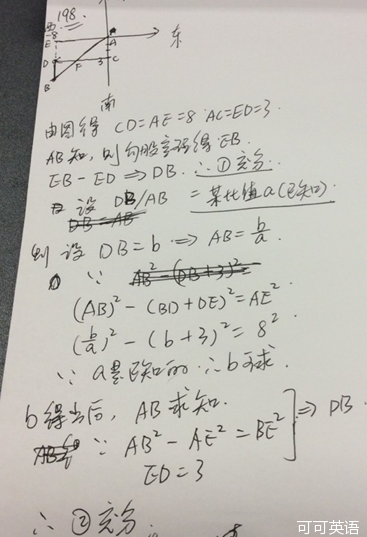 198.
西
8
东
E
A
D
F
3
C
B
南
由图得 CD=AE=8 AC=ED=3.
AB知, 则勾股定理得 EB.
EB-ED ⇒ DB. ∴①充分.
设 DB/AB = 某比值a(已知)
DB=AB
则 设 DB=b ⇒ AB=b/a.
∵ AB²-(DB+3)²
(AB)²-(BD+DE)²=AE²
(b/a)²-(b+3)²=8²
∵ a是已知的 ∴b可求.
b得出后, AB求知.
∵ AB²-AE²=BE² ⇒ DB.
ED=3
∴ ②充分
可可英语